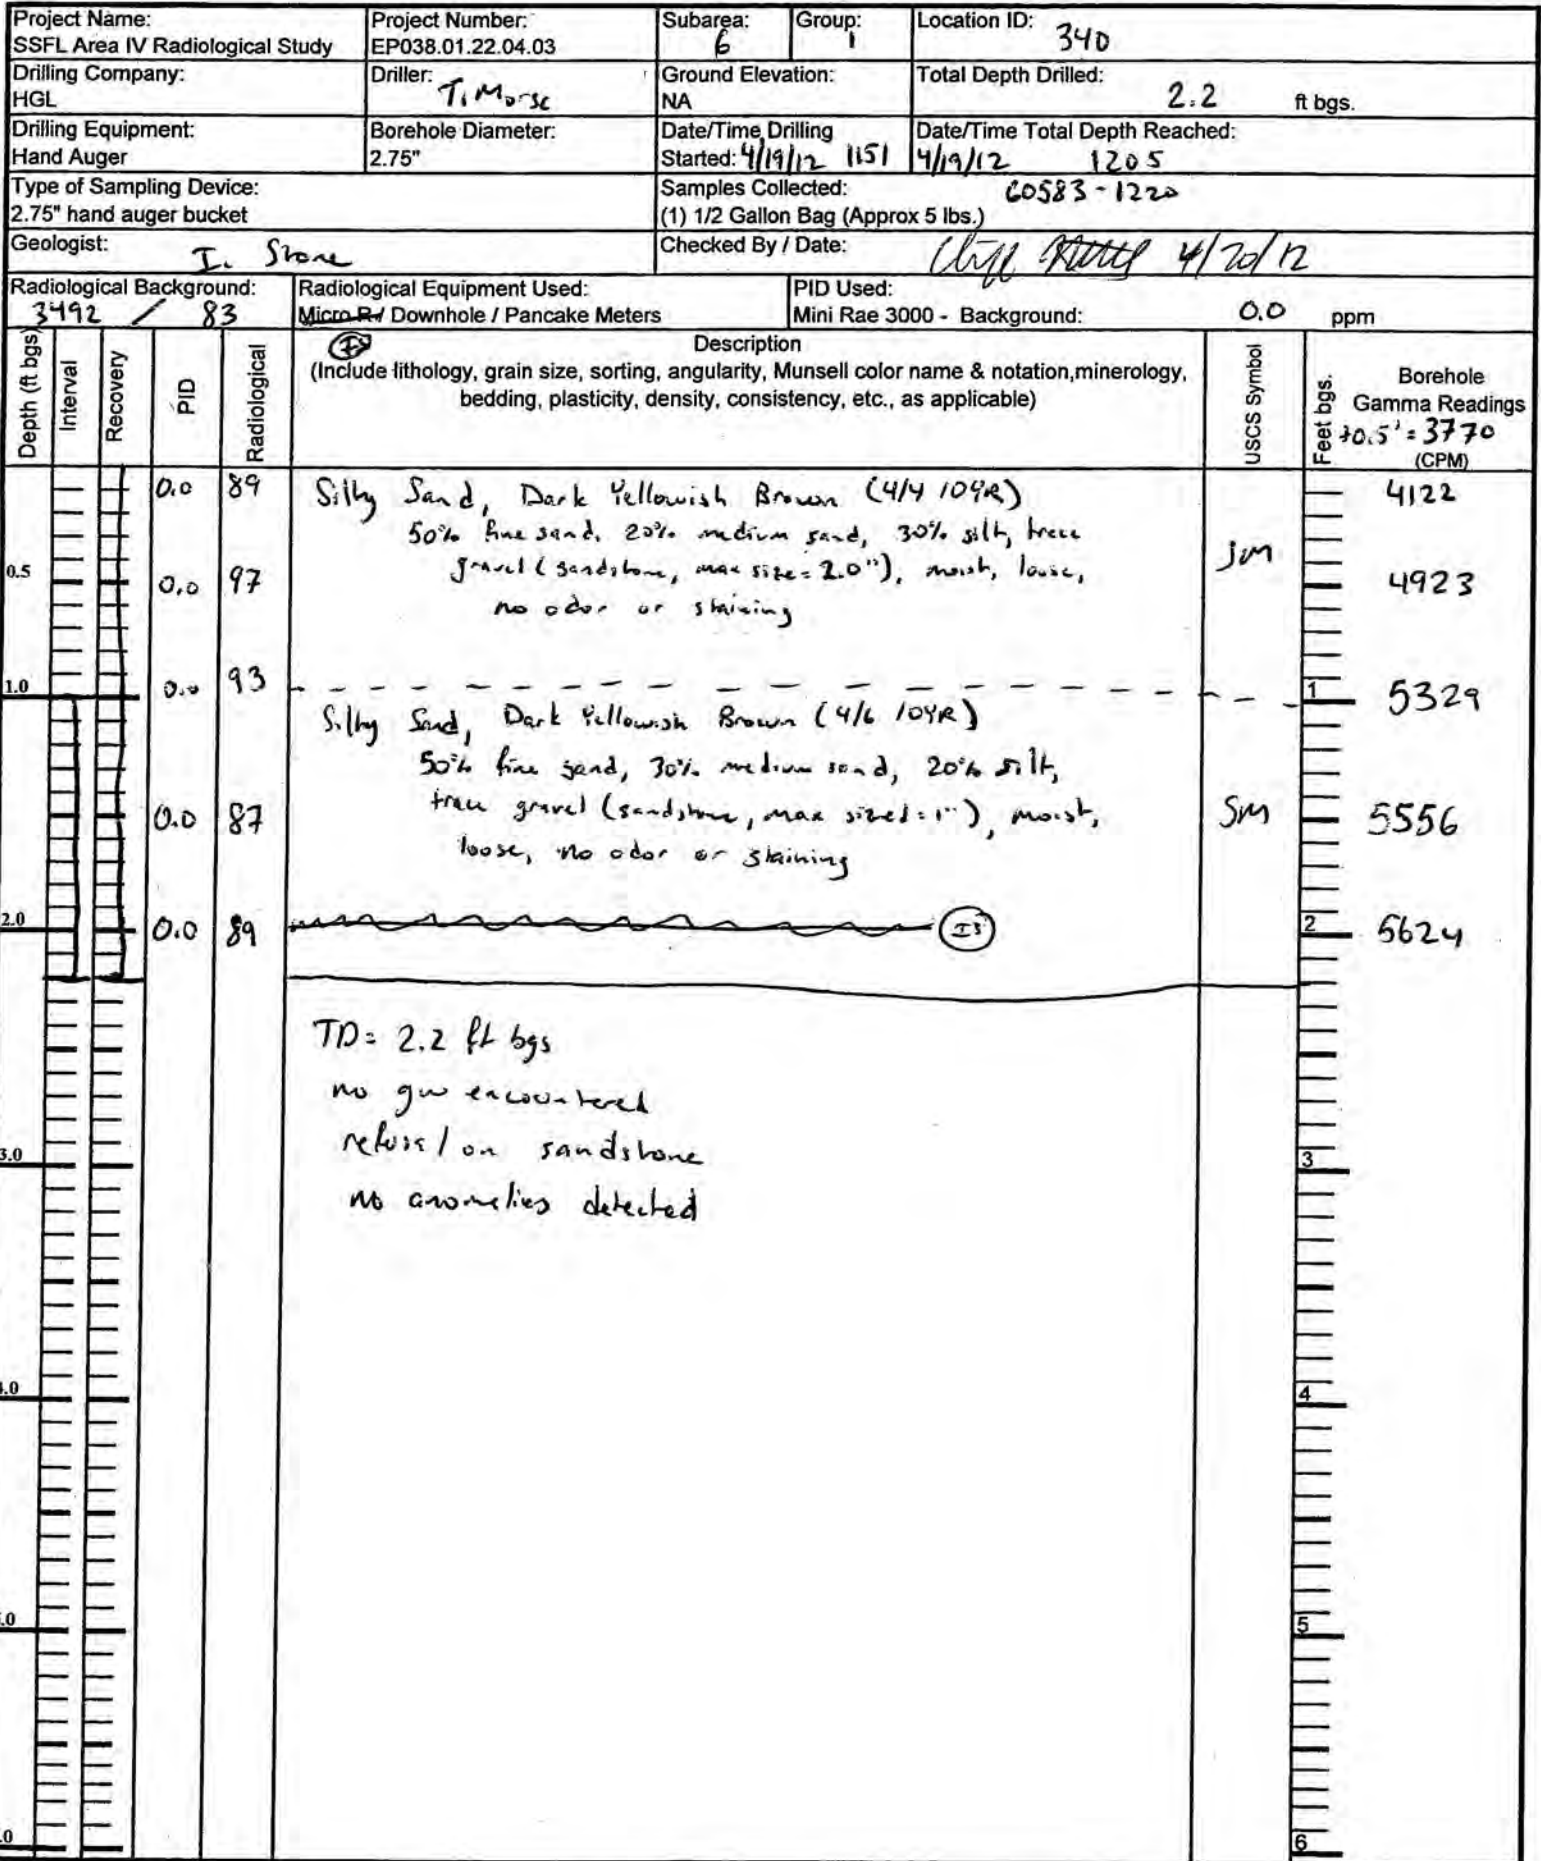 Project Name:
SSFL Area IV Radiological Study
Project Number:
EP038.01.22.04.03
Subarea:
6
Group:
1
Location ID: 340
Drilling Company:
HGL
Driller: T. Morse
Ground Elevation:
NA
Total Depth Drilled:
2.2 ft bgs.
Drilling Equipment:
Hand Auger
Borehole Diameter:
2.75"
Date/Time Drilling
Started: 4/19/12 1151
Date/Time Total Depth Reached:
4/19/12 1205
Type of Sampling Device:
2.75" hand auger bucket
Samples Collected: 60583-1220
(1) 1/2 Gallon Bag (Approx 5 lbs.)
Geologist: I. Stone
Checked By / Date: 4/20/12
Radiological Background:
3492 / 83
Radiological Equipment Used:
Micro R / Downhole / Pancake Meters
PID Used:
Mini Rae 3000 - Background: 0.0 ppm
Depth (ft bgs)
Interval
Recovery
PID
Radiological
IS
Description
(Include lithology, grain size, sorting, angularity, Munsell color name & notation,minerology,
bedding, plasticity, density, consistency, etc., as applicable)
USCS Symbol
Feet bgs.
Borehole
Gamma Readings
+0.5' = 3770
(CPM)
0.0 89 Silty Sand, Dark Yellowish Brown (4/4 10YR) 4122
50% fine sand, 20% medium sand, 30% silt, trace
gravel (sandstone, max size = 2.0"), moist, loose, sm
0.5 0.0 97 4923
no odor or staining
1.0 0.0 93 1 5329
Silty Sand, Dark Yellowish Brown (4/6 10YR)
50% fine sand, 30% medium sand, 20% silt,
trace gravel (sandstone, max sized = 1"), moist,
0.0 87 SM 5556
loose, no odor or staining
2.0 0.0 89 IS 2 5624
TD = 2.2 ft bgs
no gw encountered
refusal on sandstone
no anomelies detected
3.0 3
.0 4
.0 5
.0 6